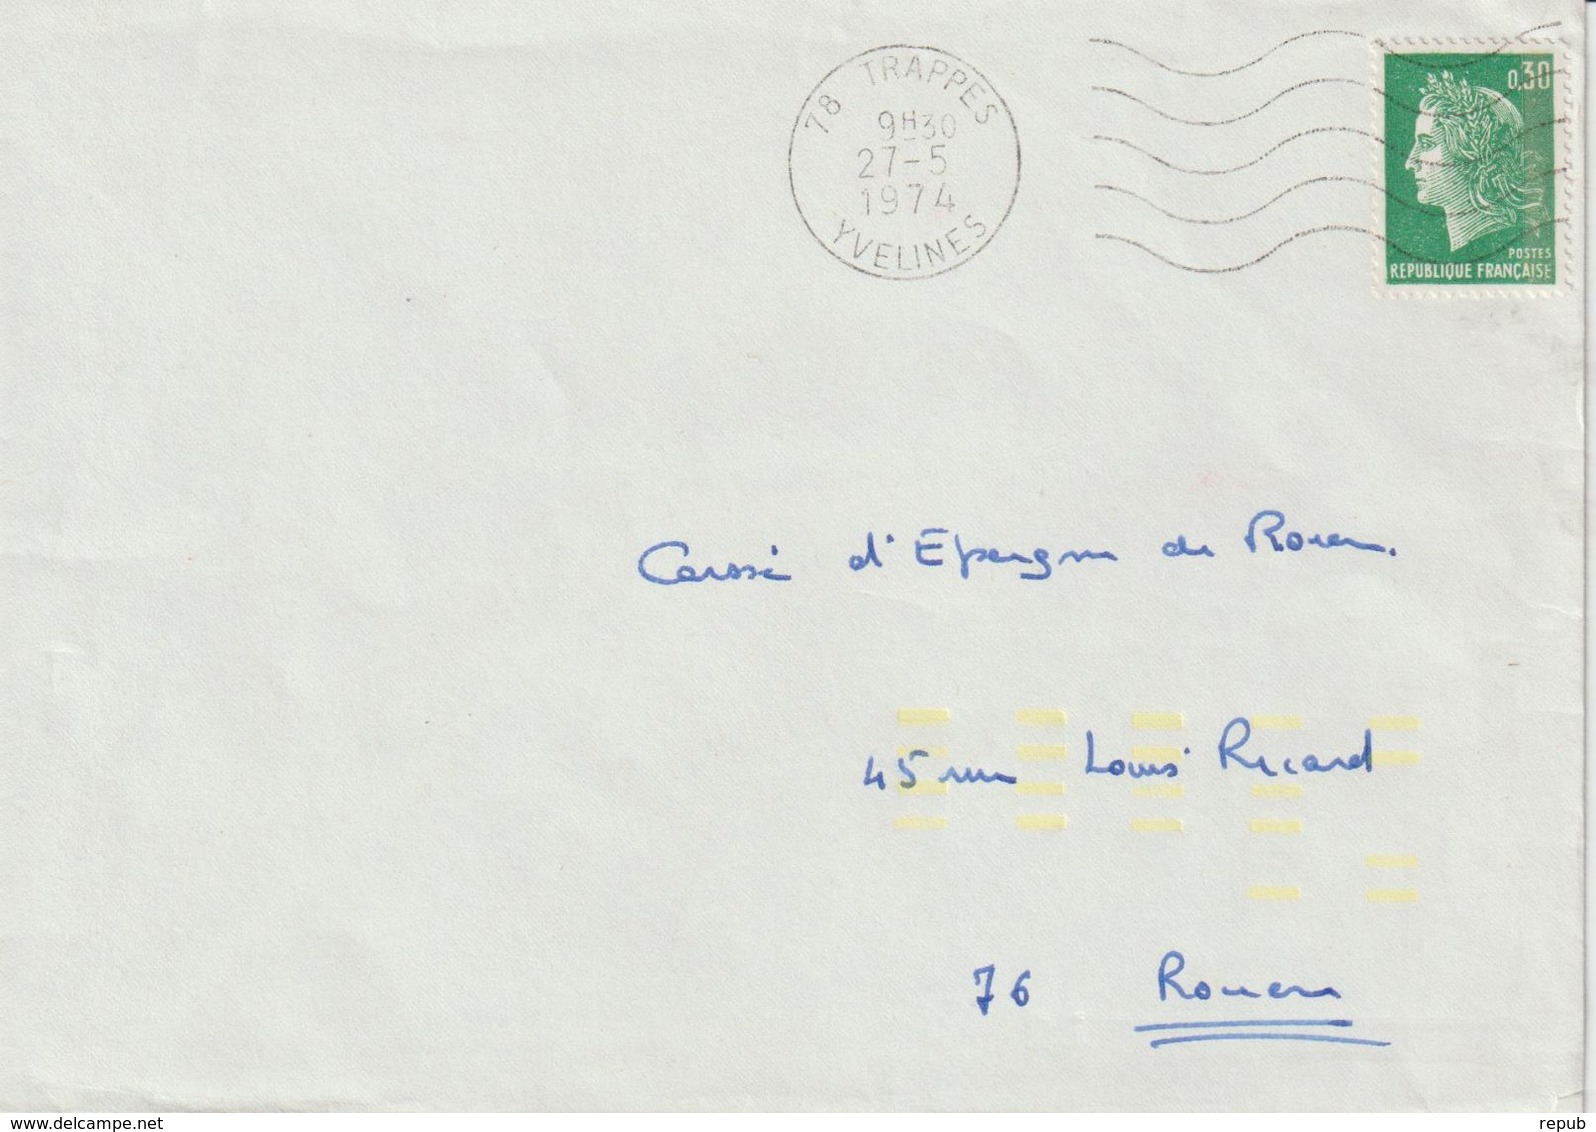 78 TRAPPES
9H30
27-5
1974
YVELINES
0,30
POSTES
REPUBLIQUE FRANÇAISE
Caisse d'Epargne de Rouen.
45 rue Louis Ricard
76 Rouen
www.delcampe.net
repub